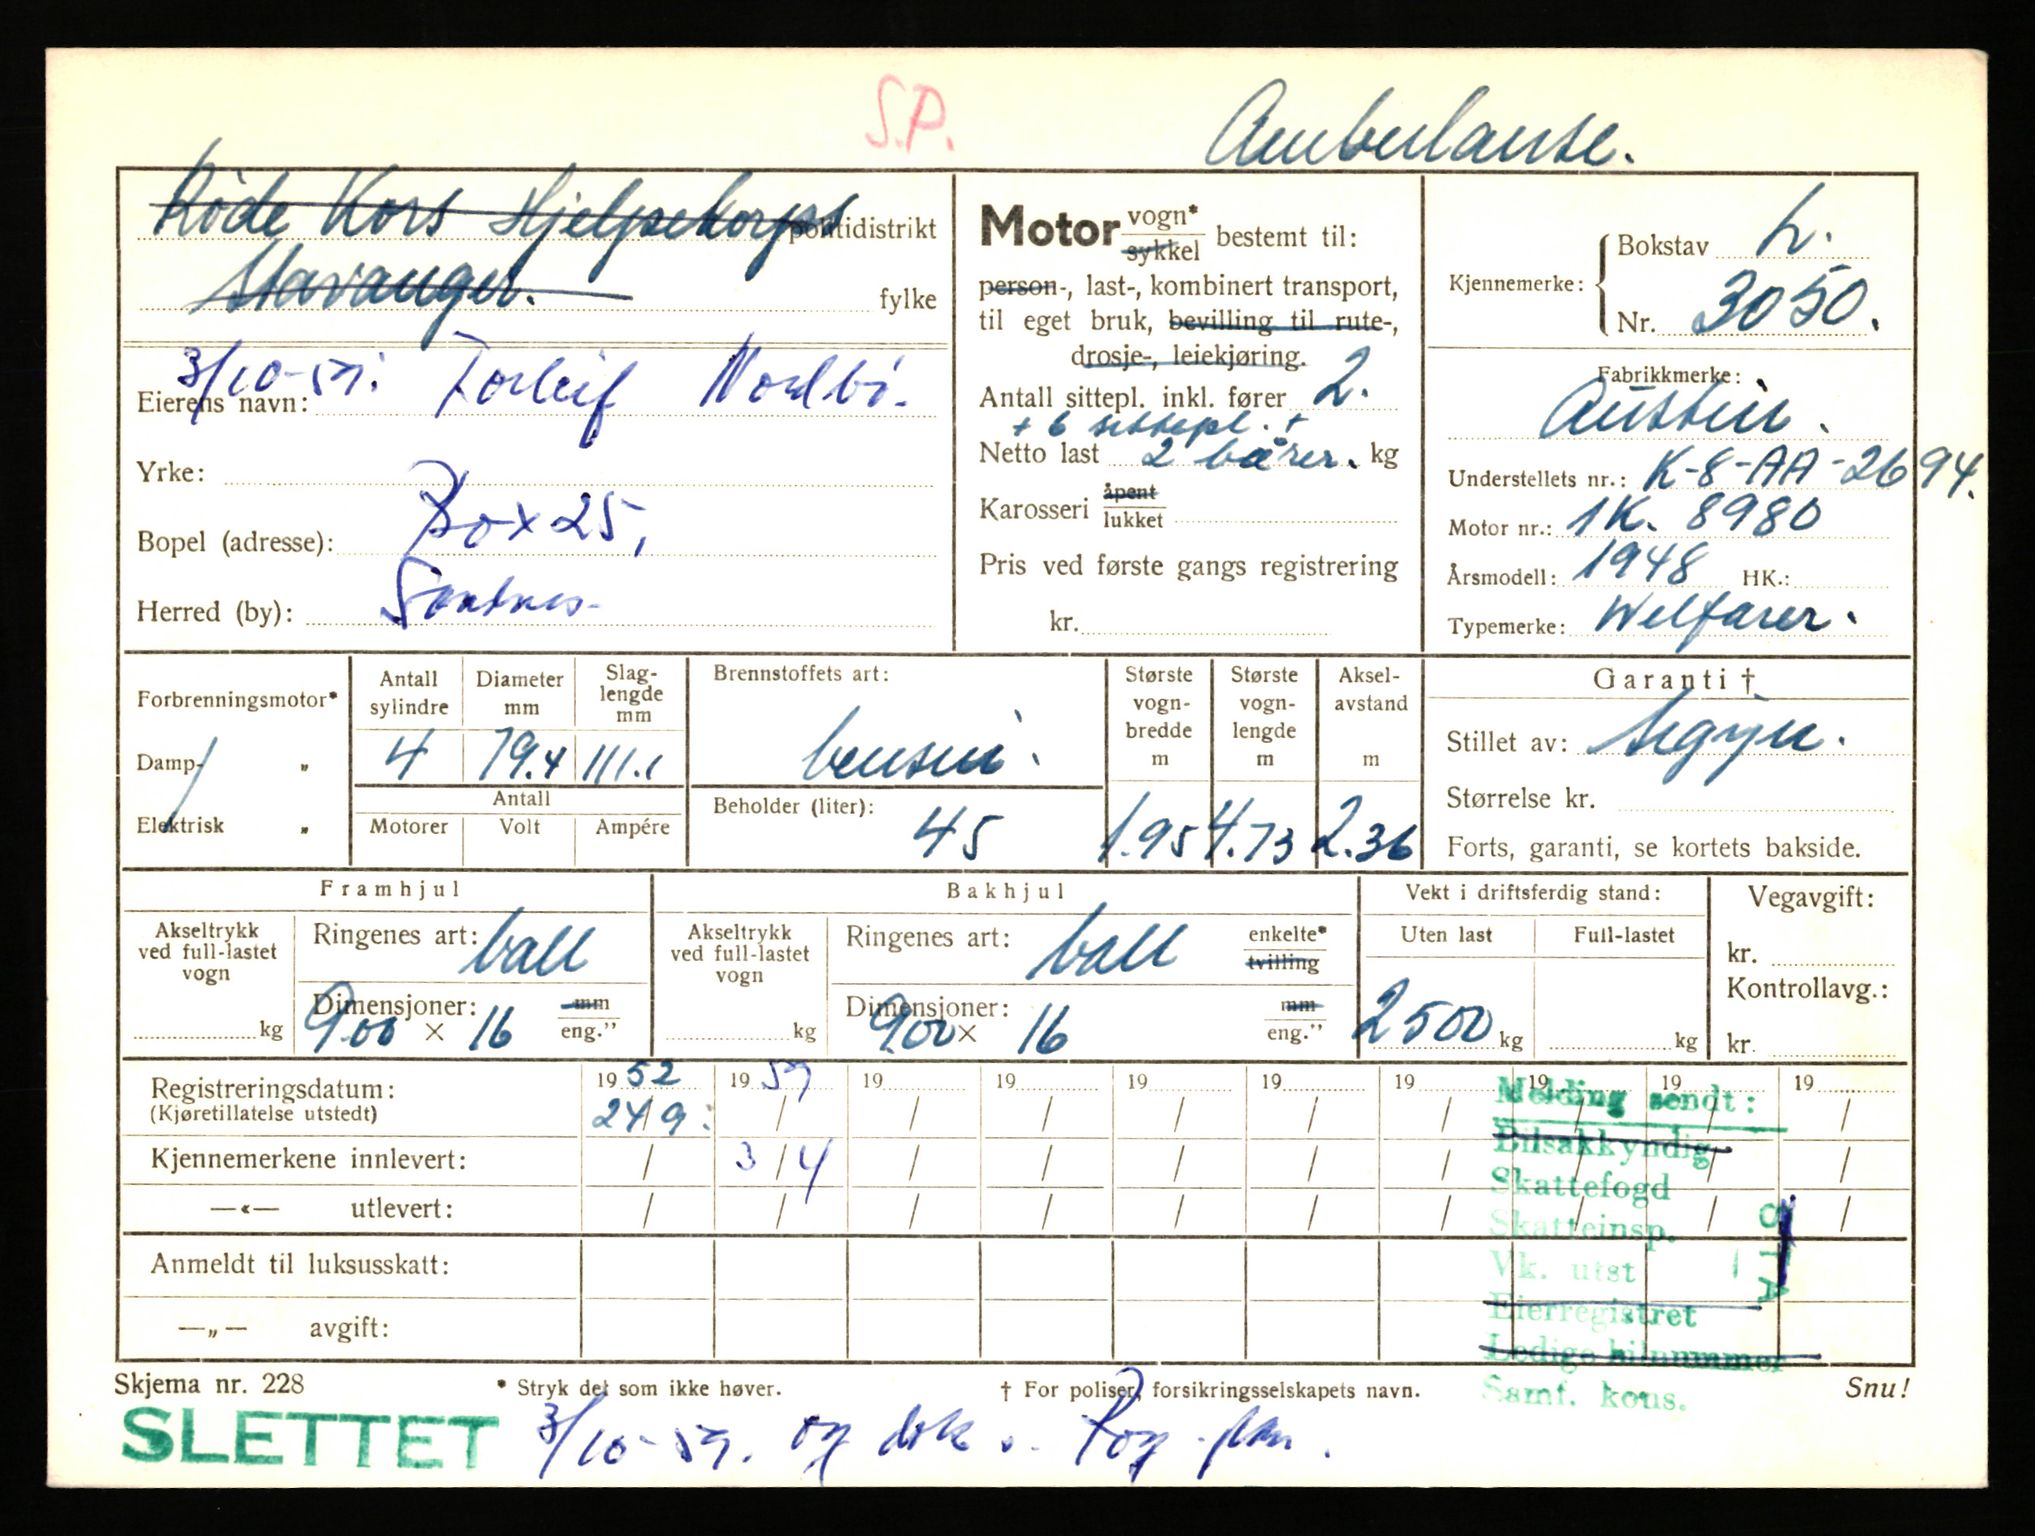 S.P. Ambulanse.
Røde Kors Hjelpekorps politidistrikt
Stavanger. fylke
3/10-59. Torleif Nordbø.
Eierens navn:
Yrke:
Bopel (adresse): Box 25,
Herred (by): Sandnes
Motor vogn* sykkel bestemt til:
person-, last-, kombinert transport,
til eget bruk, bevilling til rute-,
drosje-, leiekjøring.
Antall sittepl. inkl. fører 2.
+ 6 sittepl. +
Netto last 2 bårer. kg
Karosseri åpent lukket
Pris ved første gangs registrering
kr.
Kjennemerke: Bokstav L.
Nr. 3050.
Fabrikkmerke:
Austin.
Understellets nr.: K-8-AA-2694.
Motor nr.: 1K. 8980
Årsmodell: 1948 HK.:
Typemerke: Welfarer.
Forbrenningsmotor*
Damp- „
Elektrisk „
Antall sylindre Diameter mm Slag-lengde mm
4 79.4 111.1
Antall
Motorer Volt Ampére
Brennstoffets art:
bensin.
Beholder (liter):
45
Største vogn-bredde m Største vogn-lengde m Aksel-avstand m
1.95 4.73 2.36
Garanti †
Stillet av: Sigyn.
Størrelse kr.
Forts, garanti, se kortets bakside.
Framhjul
Akseltrykk ved full-lastet vogn
kg
Ringenes art: ball
Dimensjoner: mm
9.00 × 16 eng."
Bakhjul
Akseltrykk ved full-lastet vogn
kg
Ringenes art: ball enkelte* tvilling
Dimensjoner: mm
9.00 × 16 eng."
Vekt i driftsferdig stand:
Uten last Full-lastet
2500 kg kg
Vegavgift:
kr.
Kontrollavg.:
kr.
Registreringsdatum: 1952 1959 19 19 19 19 19 19 19 19
(Kjøretillatelse utstedt) 24/9 / / / / / / / / /
Kjennemerkene innlevert: / 3/4 / / / / / / / /
—«— utlevert: / / / / / / / / / /
Anmeldt til luksusskatt:
—„— avgift:
Melding sendt:
Bilsakkyndig
Skattefogd
Skatteinsp.
Vk. utst
Eierregistret
Ledige bilnummer
Samf. kons.
Skjema nr. 228 * Stryk det som ikke høver. † For poliser, forsikringsselskapets navn. Snu!
SLETTET 3/10-59. og